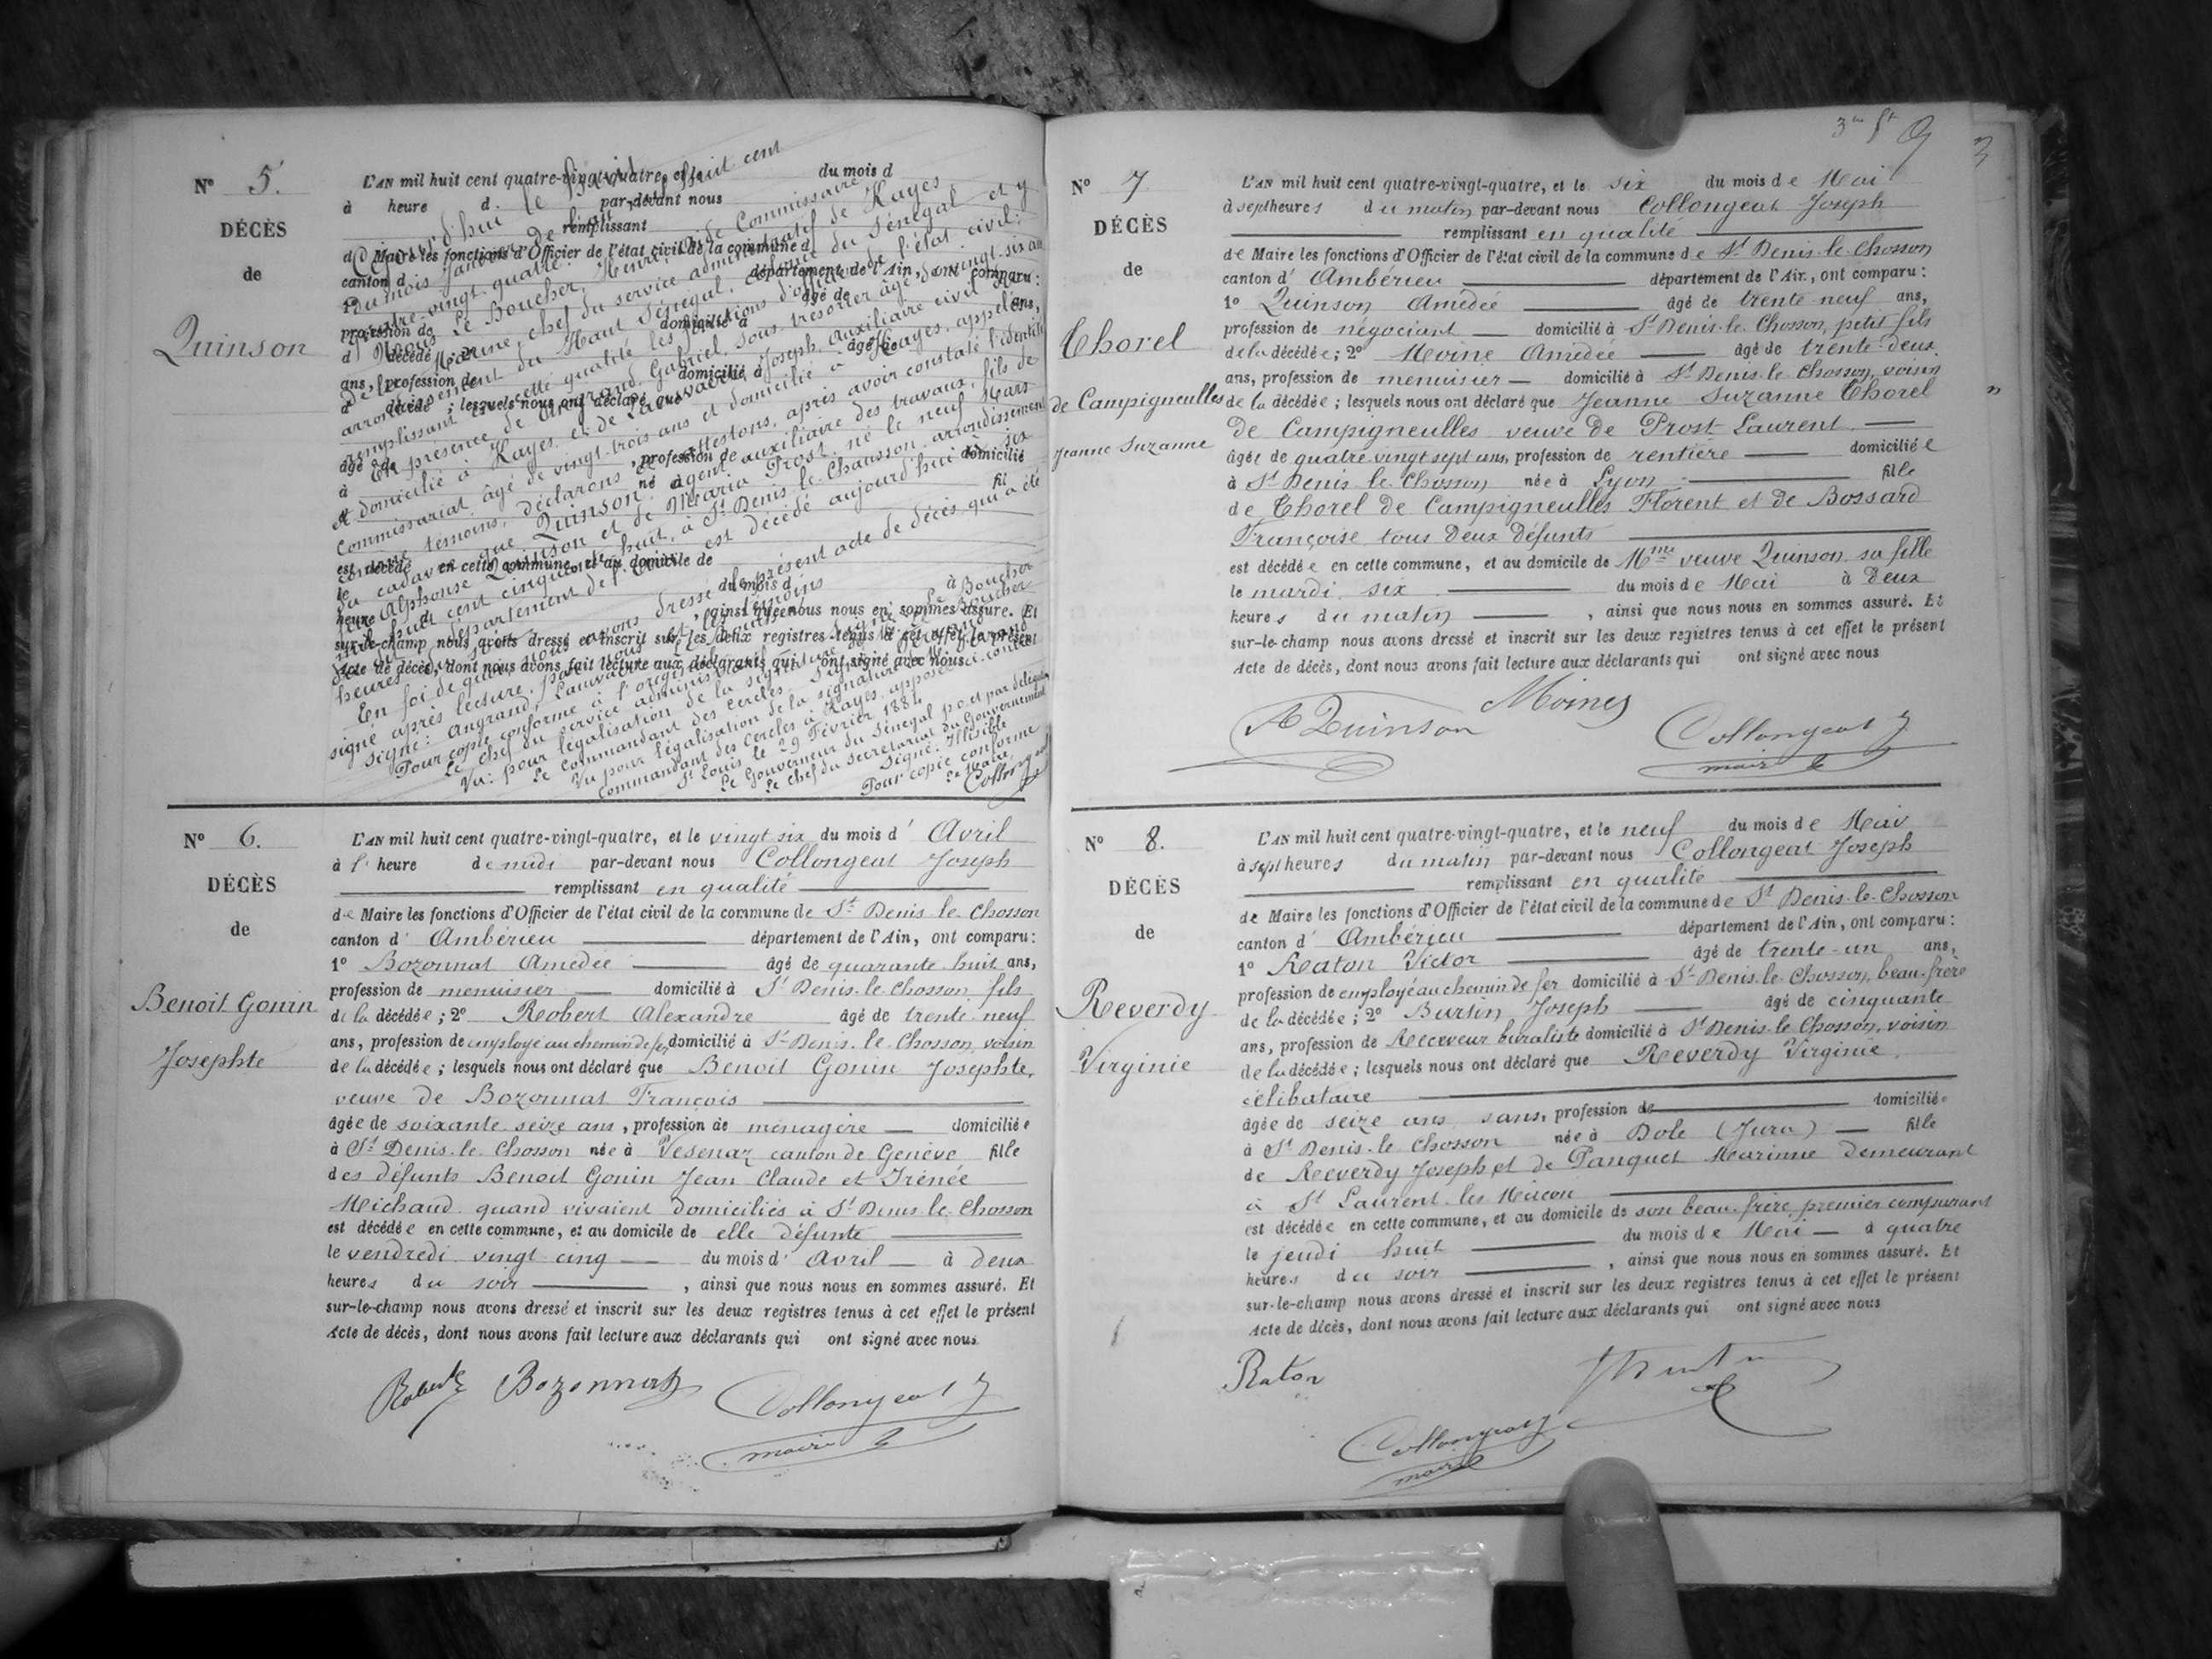 N° 5.
DÉCÈS
de
Quinson
L'AN mil huit cent quatre-vingt-quatre, et le du mois d
à heure d par-devant nous
remplissant
d Maire les fonctions d'Officier de l'état civil de la commune d
canton d département de l'Ain, ont comparu:
1° âgé de ans,
profession de domicilié à
d décédé âgé de
ans, profession de domicilié à
d décédé ; lesquels nous ont déclaré que
âgé de , profession de domicilié
à né à fil
est décédé en cette commune, et au domicile de
le du mois d à
heure d , ainsi que nous nous en sommes assuré. Et
sur-le-champ nous avons dressé et inscrit sur les deux registres tenus à cet effet le présent
Acte de décès, dont nous avons fait lecture aux déclarants qui ont signé avec nous.
quatre-vingt-quatre.
Nous Le Boucher, Henri,
chef du service administratif de Kayes
arrondissement du Haut Sénégal, colonie du Sénégal et y
remplissant en cette qualité les fonctions d'officier de l'état civil:
En présence de Angrand, Gabriel, sous-trésorier âgé de vingt-six ans
et domicilié à Kayes et de Lauvavre, Joseph, auxiliaire civil du
Commissariat âgé de vingt-trois ans et domicilié à Kayes, appelés
comme témoins, déclarons et attestons, après avoir constaté l'identité
du cadavre que Quinson agent auxiliaire des travaux, fils de
Alphonse Quinson et de Maria Prost, né le neuf Mars
mil huit cent cinquante huit, à St Denis-le-Chausson, arrondissement
département de l'Ain, est décédé aujourd'hui à six
heures
En foi de quoi nous avons dressé le présent acte de décès qui a été
signé après lecture, par nous et les témoins
Signé: Angrand, Lauvavre Le Boucher
Pour copie conforme à l'original
Le chef du service administratif
Vu: pour légalisation de la signature de M. Le Boucher
Le commandant des cercles,
Vu pour légalisation de la signature de M.
commandant des cercles à Kayes, apposée ci-contre
St Louis le 29 Février 1884
Le Gouverneur du Sénégal p.o. et par délégation
Le chef du secrétariat du Gouvernement
Signé: Illisible
Pour copie conforme
Le Maire,
N° 6.
DÉCÈS
de
Benoit Gonin
Josephte
L'AN mil huit cent quatre-vingt-quatre, et le vingt six du mois d' Avril
à l' heure de midi par-devant nous Collongeat Joseph
remplissant en qualité
de Maire les fonctions d'Officier de l'état civil de la commune de St Denis-le-Chosson
canton d' Ambérieu département de l'Ain, ont comparu:
1° Bozonnat Amédée âgé de quarante huit ans,
profession de menuisier domicilié à St Denis-le-Chosson, fils
de la décédée; 2° Robert Alexandre âgé de trente-neuf
ans, profession de employé au chemin de fer domicilié à St Denis-le-Chosson, voisin
de la décédée; lesquels nous ont déclaré que Benoit Gonin Josephte,
veuve de Bozonnat François
âgée de soixante seize ans, profession de ménagère domiciliée
à St Denis-le-Chosson née à Vesenaz canton de Genève fille
des défunts Benoit Gonin Jean Claude et Irénée
Michaud quand vivaient domiciliés à St Denis-le-Chosson
est décédée en cette commune, et au domicile de elle défunte
le vendredi vingt cinq du mois d' avril à deux
heures du soir , ainsi que nous nous en sommes assuré. Et
sur-le-champ nous avons dressé et inscrit sur les deux registres tenus à cet effet le présent
Acte de décès, dont nous avons fait lecture aux déclarants qui ont signé avec nous
Robert Bozonnat Collongeat J
maire
N° 7
DÉCÈS
de
Thorel
de Campigneulles
Jeanne Suzanne
L'AN mil huit cent quatre-vingt-quatre, et le six du mois de Mai
à sept heures du matin par-devant nous Collongeat Joseph
remplissant en qualité
de Maire les fonctions d'Officier de l'état civil de la commune de St Denis-le-Chosson
canton d' Ambérieu département de l'Ain, ont comparu:
1° Quinson Amédée âgé de trente-neuf ans,
profession de négociant domicilié à St Denis-le-Chosson, petit fils
de la décédée; 2° Moine Amédée âgé de trente-deux
ans, profession de menuisier domicilié à St Denis-le-Chosson, voisin
de la décédée; lesquels nous ont déclaré que Jeanne Suzanne Thorel
de Campigneulles veuve de Prost Laurent
âgée de quatre vingt sept ans, profession de rentière domiciliée
à St Denis-le-Chosson née à Lyon fille
de Thorel de Campigneulles Florent et de Bossard
Françoise tous deux défunts
est décédée en cette commune, et au domicile de Mme veuve Quinson sa fille
le mardi six du mois de Mai à deux
heures du matin , ainsi que nous nous en sommes assuré. Et
sur-le-champ nous avons dressé et inscrit sur les deux registres tenus à cet effet le présent
Acte de décès, dont nous avons fait lecture aux déclarants qui ont signé avec nous
A Quinson Moines
Collongeat J
maire
N° 8.
DÉCÈS
de
Reverdy
Virginie
L'AN mil huit cent quatre-vingt-quatre, et le neuf du mois de Mai
à sept heures du matin par-devant nous Collongeat Joseph
remplissant en qualité
de Maire les fonctions d'Officier de l'état civil de la commune de St Denis-le-Chosson
canton d' Ambérieu département de l'Ain, ont comparu:
1° Raton Victor âgé de trente-un ans,
profession de employé au chemin de fer domicilié à St Denis-le-Chosson, beau-frère
de la décédée; 2° Burtin Joseph âgé de cinquante
ans, profession de Receveur buraliste domicilié à St Denis-le-Chosson, voisin
de la décédée; lesquels nous ont déclaré que Reverdy Virginie,
célibataire
âgée de seize ans sans, profession de domiciliée
à St Denis-le-Chosson née à Dole (Jura) fille
de Reverdy Joseph et de Panquet Marinne demeurant
à St Laurent-les-Mâcon
est décédée en cette commune, et au domicile de son beau-frère premier comparant
le jeudi huit du mois de Mai à quatre
heures du soir , ainsi que nous nous en sommes assuré. Et
sur-le-champ nous avons dressé et inscrit sur les deux registres tenus à cet effet le présent
Acte de décès, dont nous avons fait lecture aux déclarants qui ont signé avec nous
Raton
Collongeat J
maire